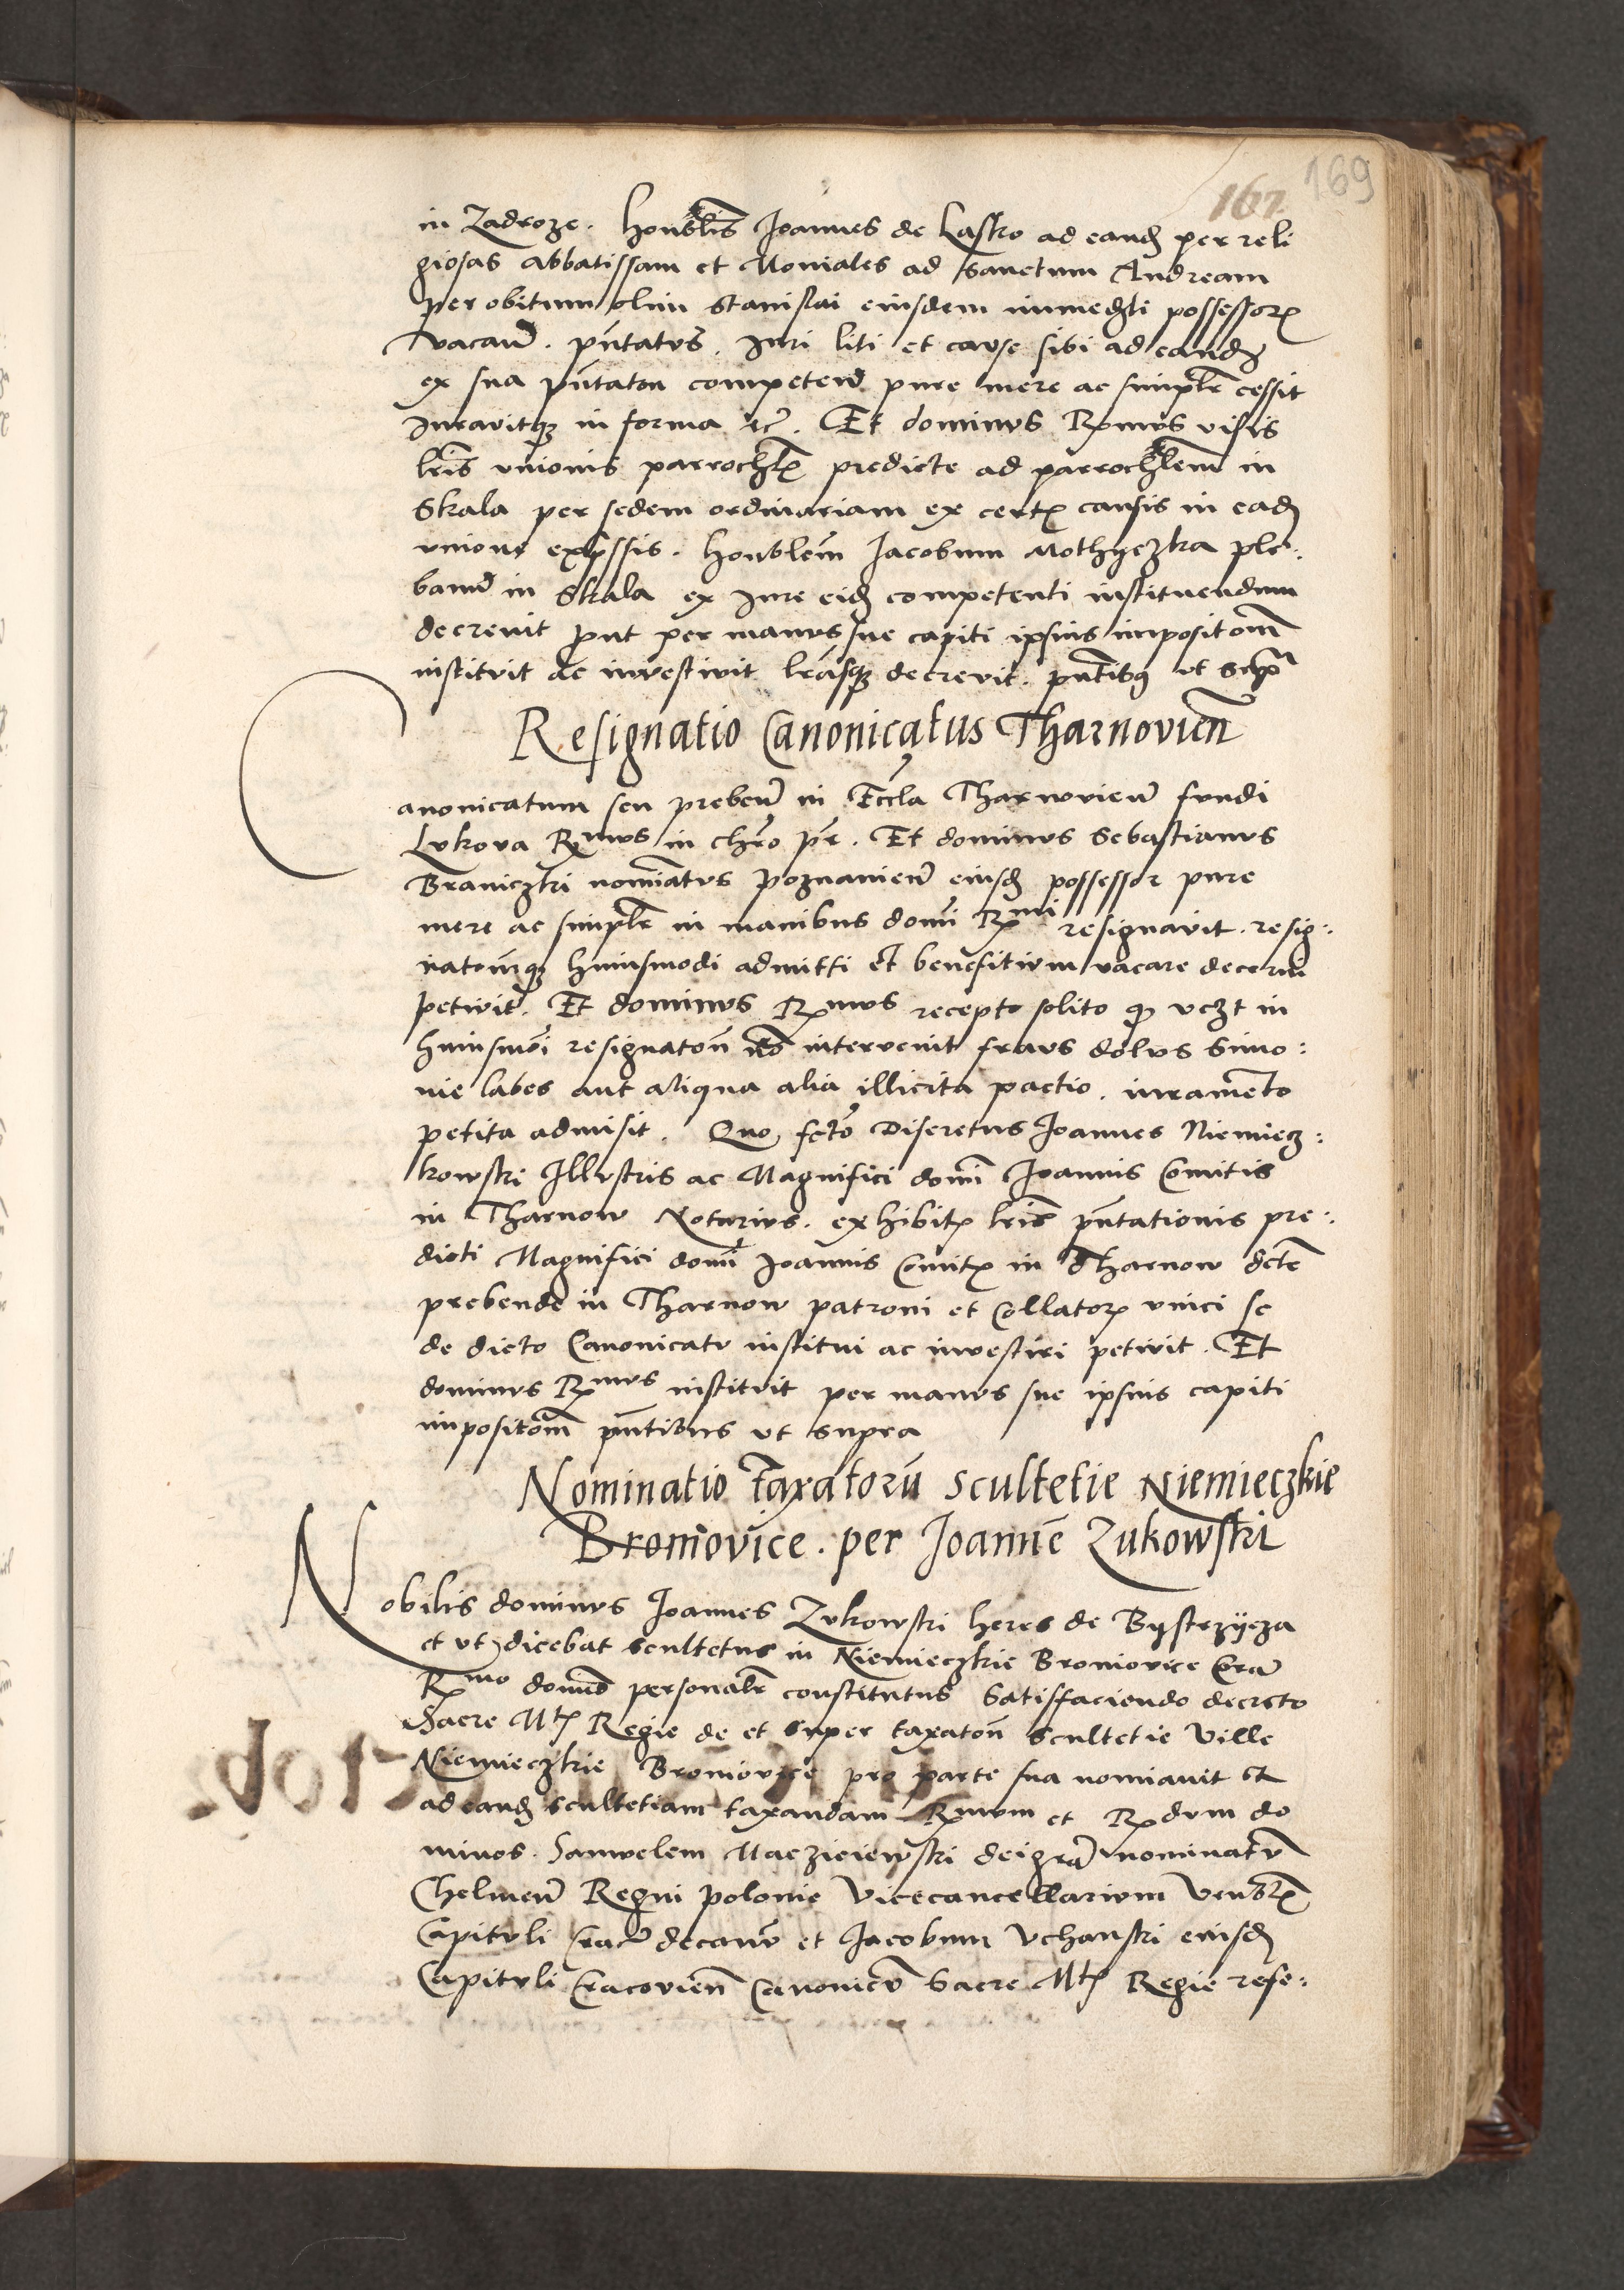 167 169
in Zadroze. Honblis Joannes de Lassko ad eand per reli
giosas Abbatissam et Moniales ad sanctum Andream
per obitum olim Stanislai eiusdem immediti possessor
vacan. pntatus. Juri liti et cause sibi ad eand
ex sua pntaton competen pure mere ac simplr cessit
Juravitq in forma etc. Et dominus Rmus visis
lris unionis parrochl predicte ad parrochlem in
Skala per sedem ordinariam ex cert causis in ead
unione expssis. Honblem Jacobum Mothyczka ple:
banu in Skala ex Jure eid competenti instituendum
decrevit pout per manus sue capiti ipsius impositom
instituit ac investivit lrasq decrevit. pntibq ut Supa
Resignatio Canonicatus Tharnovien
Canonicatum seu preben in Eccla Tharnovien fundi
Lukova Rmus in chro pr. Et dominus Sebastianus
Braniczki nominatus Poznanien eiusd possessor pure
mere ac simplr in manibus domi Rmi resignavit. resig:
natomq huiusmodi admitti et benefitium vacare decerni
petivit. Et dominus Rmus recepto solito q vczt in
huiusmoi resignaton no intervenit fraus dolus Simo:
nie labes aut aliqua alia illicita pactio. iuramento
petita admisit. Quo fcto Discretus Joannes Niemiecz:
kowski Illustris ac Magnifici domi Joannis Comitis
in Tharnow Notarius. exhibit lris pntationis pre:
dicti Magnifici domi Joannis Comit in Tharnow dcte
prebende in Tharnow patroni et Collator unici se
de dicto Canonicatu institui ac investiri petivit. Et
dominus Rmus instituit per manus sue ipsius capiti
impositom pntibus ut supra
Nominatio taxatoru scultetie Niemieczkie
Broniovice. per Joanne Zukowski
Nobilis dominus Joannes Zukowski heres de Bystrzycza
et ut dicebat scultetus in Niemieczkie Broniovice Cora
Rmo domo personalr constitutus Satisfaciendo decreto
Sacre Mt Regie de et super taxaton scultetie Ville
Niemieczkie Broniovice pro parte sua nomiavit et
ad eand scultetiam taxandam Rmum et Rdum do
minos. Samuelem Macziejewski dei gra nominatu
Chelmen Regni Polonie Vicecancellarium Venbl
Capituli Crac decanu et Jacobum Uchanski eiusd
Capituli Cracovien Canonicu Sacre Mt Regie refe: